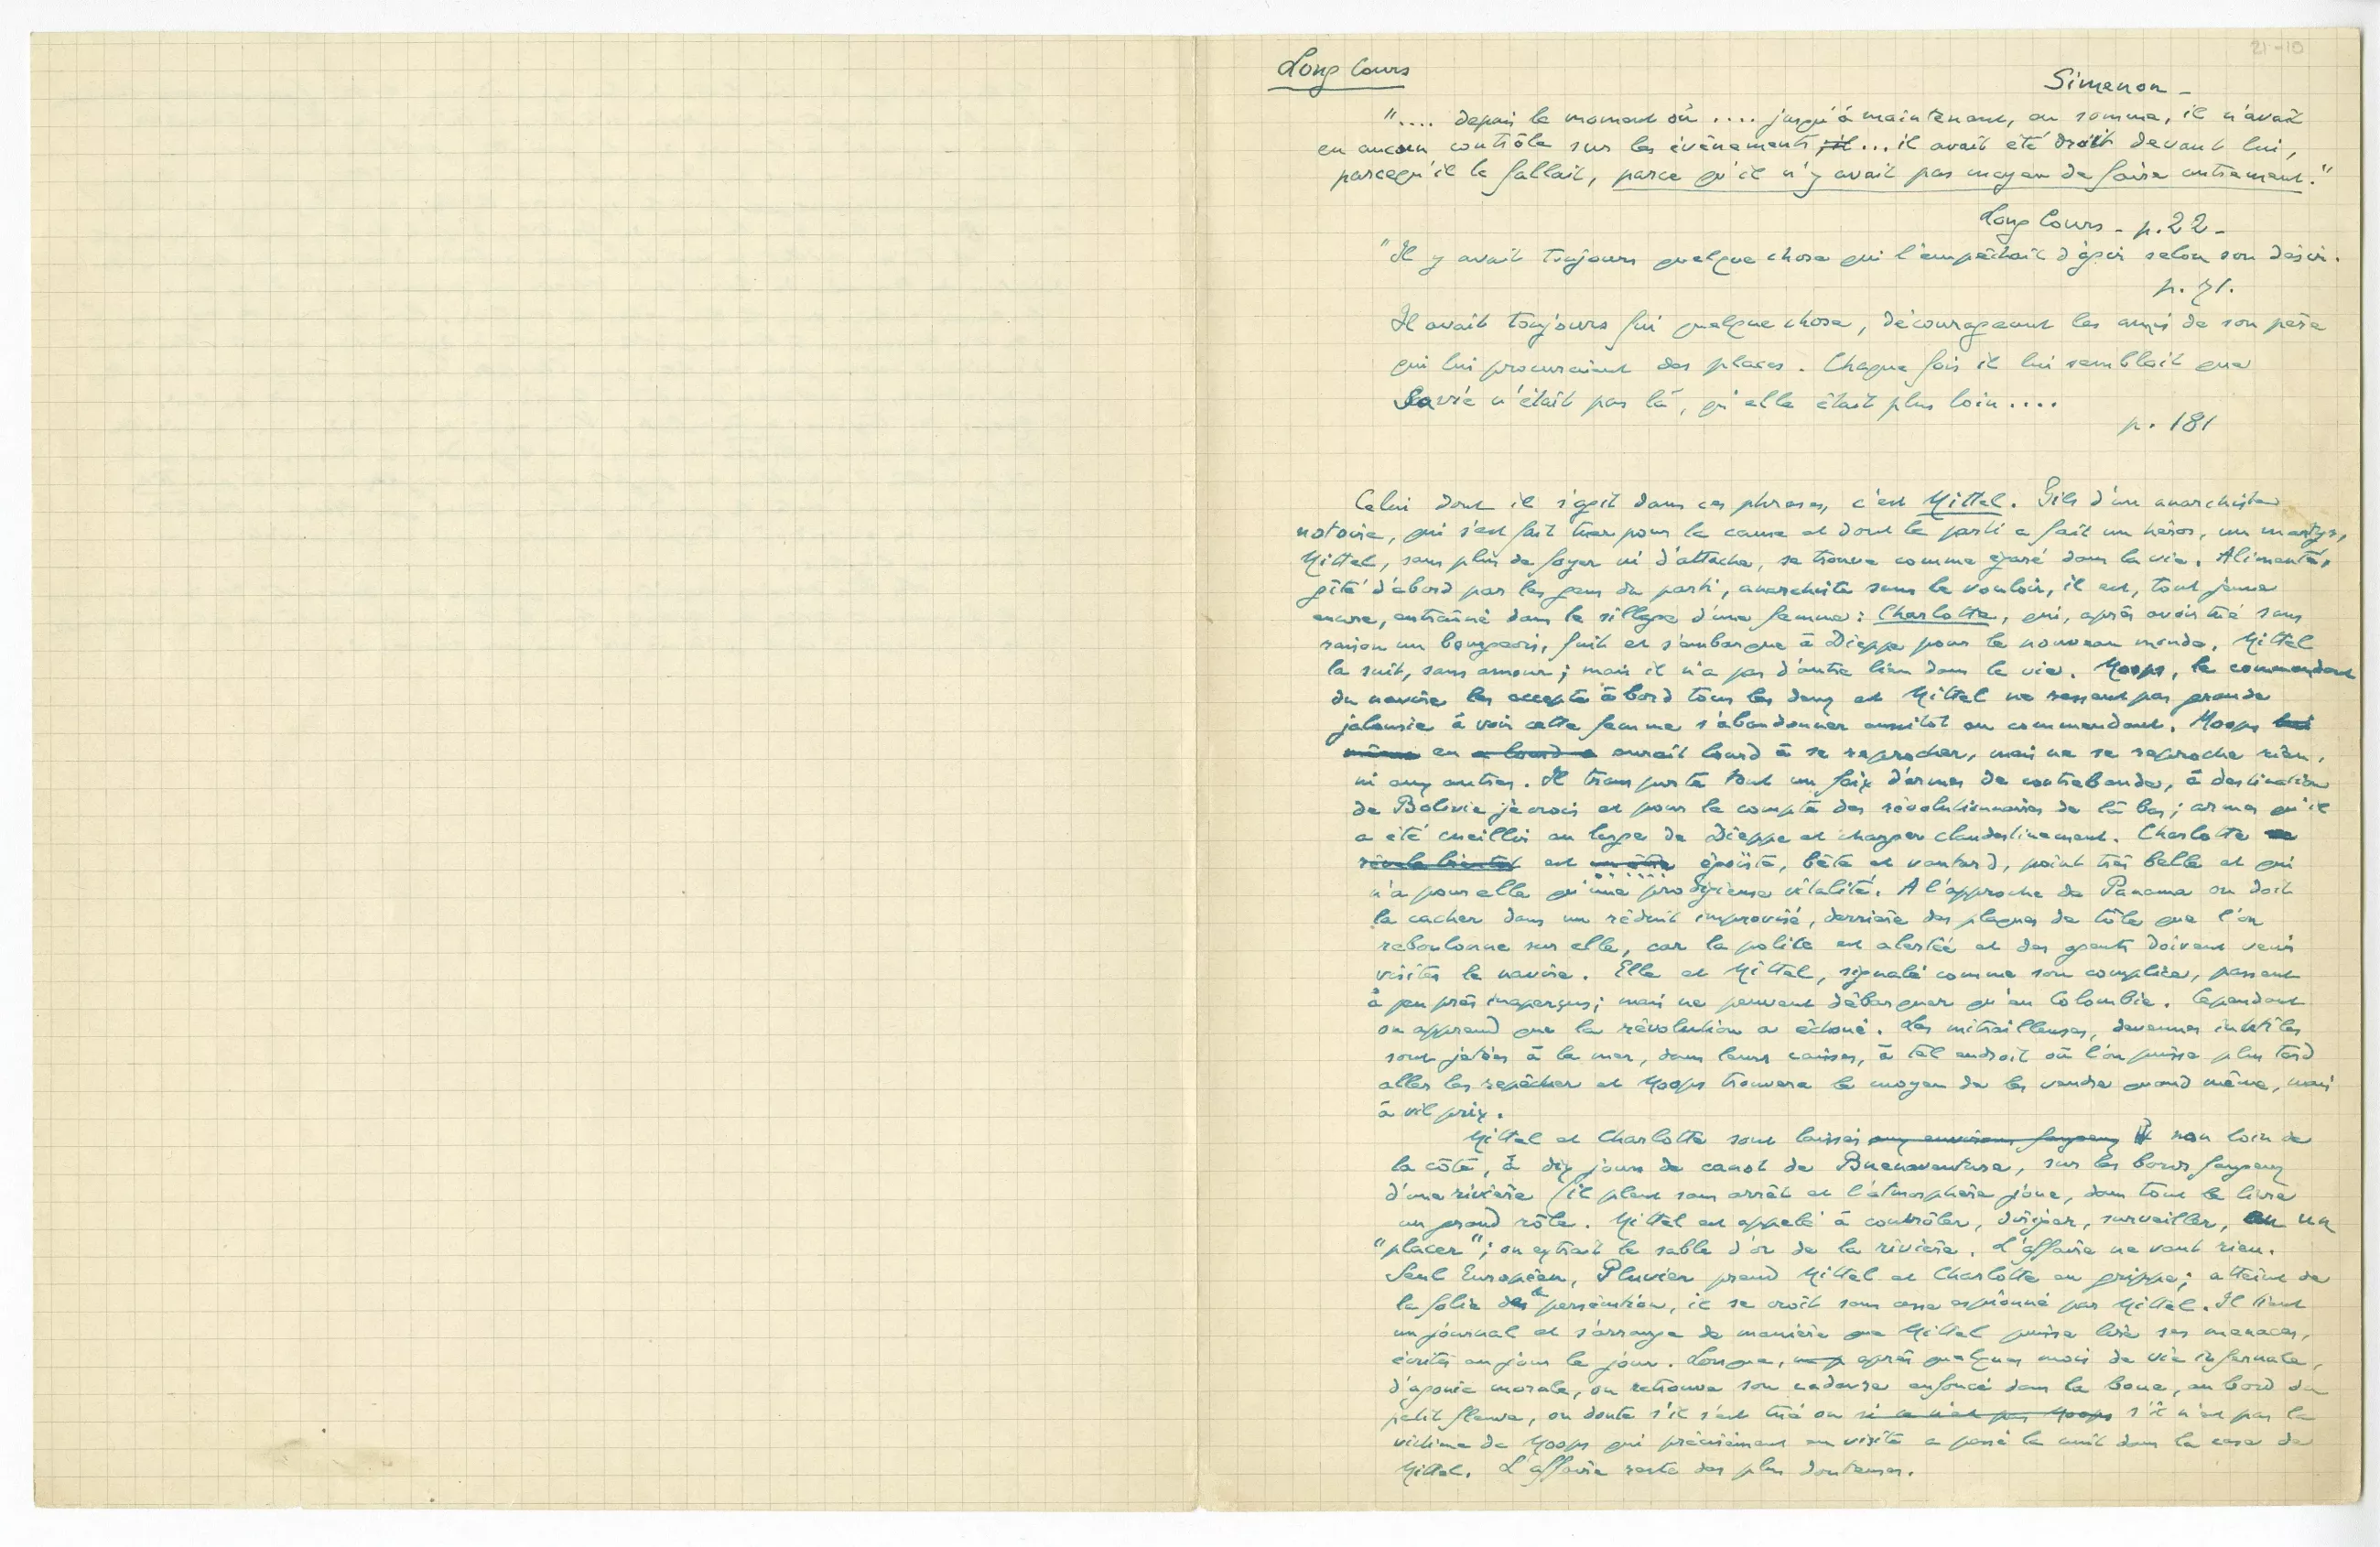 21-10
Long Cours
Simenon -
".... depuis le moment où .... jusqu'à maintenant, en somme, il n'avait
eu aucun contrôle sur les évènements, il ... il avait été droit devant lui,
parcequ'il le fallait, parce qu'il n'y avait pas moyen de faire autrement."
Long Cours - p. 22 -
"Il y avait toujours quelque chose qui l'empêchait d'agir selon son désir.
p. 71.
Il avait toujours fui quelque chose, décourageant les amis de son père
qui lui procuraient des places. Chaque fois il lui semblait que
la vie n'était pas là, qu'elle était plus loin ....
p. 181
Celui dont il s'agit dans ces phrases, c'est Mittel. Fils d'un anarchiste
notoire, qui s'est fait tuer pour la cause et dont le parti a fait un héros, un martyr,
Mittel, sans plus de foyer ni d'attache, se trouve comme égaré dans la vie. Alimenté,
gîté d'abord par les gens du parti, anarchiste sans le vouloir, il est, tout jeune
encore, entraîné dans le sillage d'une femme : Charlotte, qui, après avoir tué sans
raison un bourgeois, fuit et s'embarque à Dieppe pour le nouveau monde. Mittel
la suit, sans amour ; mais il n'a pas d'autre lien dans la vie. Moops, le commandant
du navire les accepte à bord tous les deux et Mittel ne ressent pas grande
jalousie à voir cette femme s'abandonner aussitôt au commandant. Moops lui
même en a lourd a aurait lourd à se reprocher, mais ne se reproche rien,
ni aux autres. Il transporte tout un faix d'armes de contrebande, à destination
de Bolivie je crois et pour le compte des révolutionnaires de là bas ; armes qu'il
a été cueillir au large de Dieppe et charger clandestinement. Charlotte se
révèle bientôt est un être égoïste, bête et vantard, point très belle et qui
n'a pour elle qu'une prodigieuse vitalité. A l'approche de Panama on doit
la cacher dans un réduit improvisé, derrière des plaques de tôle que l'on
reboulonne sur elle, car la police est alertée et des agents doivent venir
visiter le navire. Elle et Mittel, signalé comme son complice, passent
à peu près inaperçus ; mais ne peuvent débarquer qu'en Colombie. Cependant
on apprend que la révolution a échoué. Les mitrailleuses, devenues inutiles
sont jetées à la mer, dans leurs caisses, à tel endroit où l'on puisse plus tard
aller les repêcher et Moops trouvera le moyen de les vendre quand même, mais
à vil prix.
Mittel et Charlotte sont laissés aux environs fangeux non loin de
la côte, à dix jours de canot de Buenaventura, sur les bords fangeux
d'une rivière (il pleut sans arrêt et l'atmosphère joue, dans tout le livre
un grand rôle. Mittel est appelé à contrôler, diriger, surveiller, un
"placer" ; on extrait le sable d'or de la rivière. L'affaire ne vaut rien.
Seul Européen, Pluvier prend Mittel et Charlotte en grippe ; atteint de
la folie de la persécution, il se croit sans cesse espionné par Mittel. Il tient
un journal et s'arrange de manière que Mittel puisse lire ses menaces,
écrites au jour le jour. Lorsque, après quelques mois de vie infernale,
d'agonie morale, on retrouve son cadavre enfoncé dans la boue, au bord du
petit fleuve, on doute s'il s'est tué ou si ce n'est pas Moops s'il n'est pas la
victime de Moops qui précisément en visite a passé la nuit dans la case de
Mittel. L'affaire reste des plus douteuses.